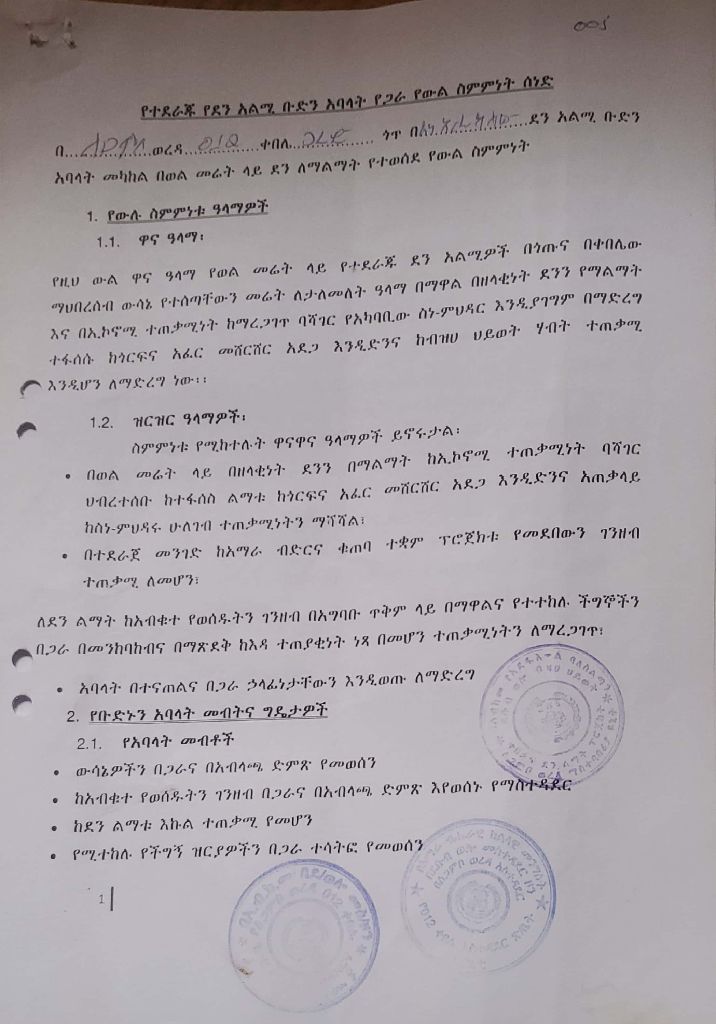 005
የተደራጁ የደን አልሚ ቡድን አባላት የጋራ የውል ስምምነት ሰነድ
በ.............ወረዳ 012 ቀበሌ ........... ጎጥ በ................ደን አልሚ ቡድን
አባላት መካከል በወል መሬት ላይ ደን ለማልማት የተወሰደ የውል ስምምነት
1. የውሉ ስምምነቱ ዓላማዎች
1.1. ዋና ዓላማ፡
የዚህ ውል ዋና ዓላማ የወል መሬት ላይ የተደራጁ ደን አልሚዎች በጎጡና በቀበሌው
ማህበረሰብ ውሳኔ የተሰጣቸውን መሬት ለታለመለት ዓላማ በማዋል በዘላቂነት ደንን የማልማት
እና በኢኮኖሚ ተጠቃሚነት ከማረጋገጥ ባሻገር የአካባቢው ስነ-ምህዳር እንዲያገግም በማድረግ
ተፋሰሱ ከጎርፍና አፈር መሸርሸር አደጋ እንዲድንና ከብዝሀ ህይወት ሃብት ተጠቃሚ
እንዲሆን ለማድረግ ነው፡፡
1.2. ዝርዝር ዓላማዎች፡
ስምምነቱ የሚከተሉት ዋናዋና ዓላማዎች ይኖሩታል፡
• በወል መሬት ላይ በዘላቂነት ደንን በማልማት ከኢኮኖሚ ተጠቃሚነት ባሻገር
ህብረተሰቡ ከተፋሰስ ልማቱ ከጎርፍና አፈር መሸርሸር አደጋ እንዲድንና አጠቃላይ
ከስነ-ምህዳሩ ሁለገብ ተጠቃሚነትን ማሻሻል፣
• በተደራጀ መንገድ ከአማራ ብድርና ቁጠባ ተቋም ፕሮጀክቱ የመደበውን ገንዘብ
ተጠቃሚ ለመሆን፣
ለደን ልማት ከአብቁተ የወሰዱትን ገንዘብ በአግባቡ ጥቅም ላይ በማዋልና የተተከሉ ችግኞችን
በጋራ በመንከባከብና በማጽደቅ ከእዳ ተጠያቂነት ነጻ በመሆን ተጠቃሚነትን ለማረጋገጥ፣
• አባላት በተናጠልና በጋራ ኃላፊነታቸውን እንዲወጡ ለማድረግ
2. የቡድኑን አባላት መብትና ግዴታዎች
2.1. የአባላት መብቶች
• ውሳኔዎችን በጋራና በአብላጫ ድምጽ የመወሰን
• ከአብቁተ የወሰዱትን ገንዘብ በጋራና በአብላጫ ድምጽ እየወሰኑ የማስተዳደር
• ከደን ልማቱ እኩል ተጠቃሚ የመሆን
• የሚተከሉ የችግኝ ዝርያዎችን በጋራ ተሳትፎ የመወሰን
1|